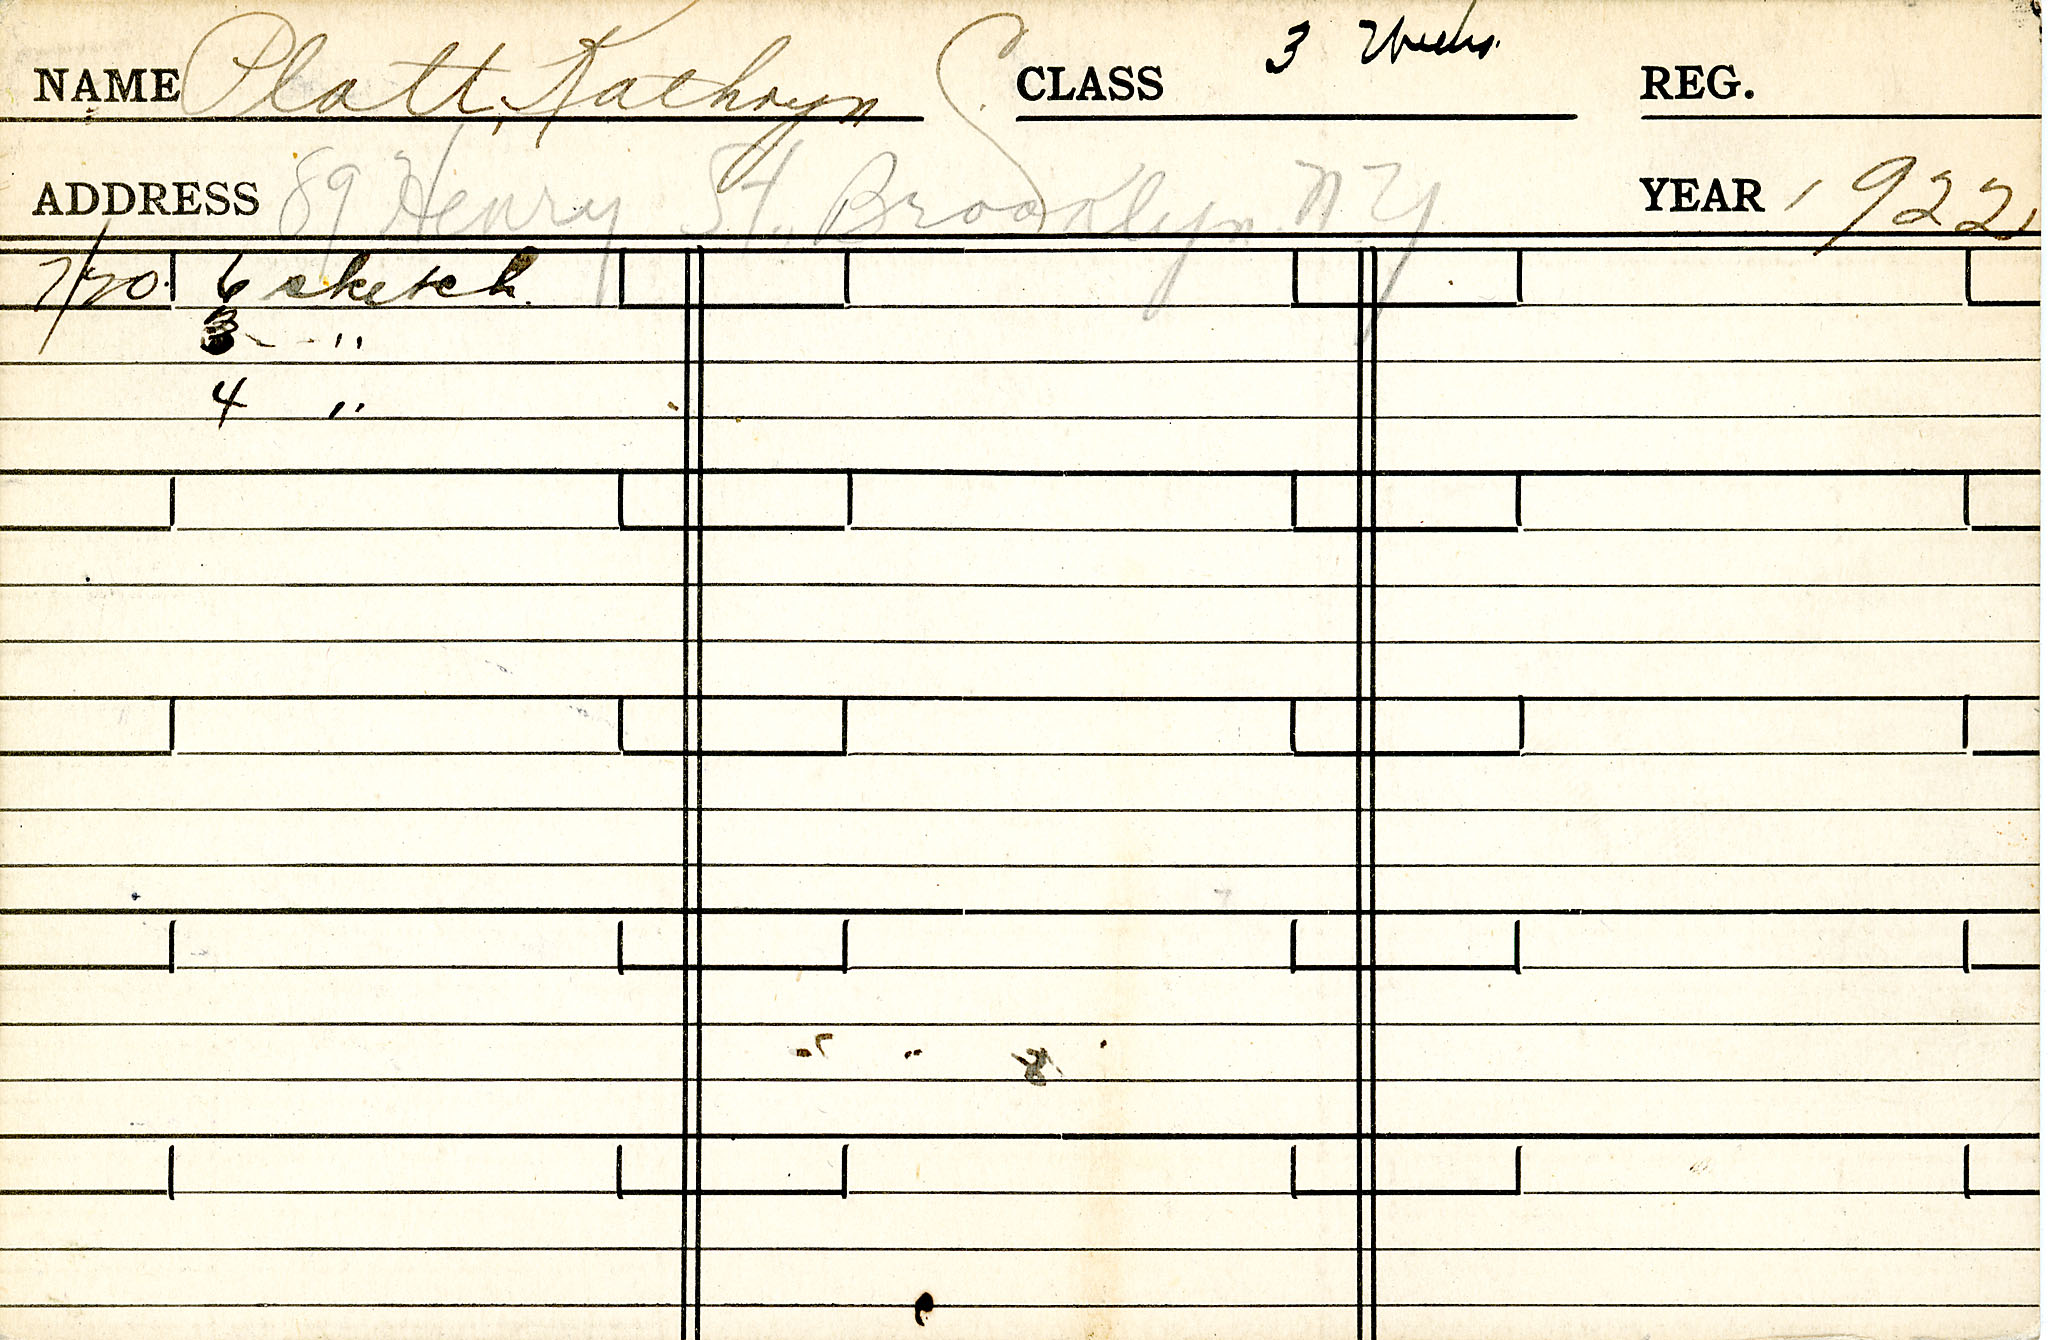 NAME Platt, Kathryn C. CLASS 3 Weeks. REG.
ADDRESS 89 Henry St. Brooklyn N.Y. YEAR 1922
7/20 6 sketch
3 "
4 "